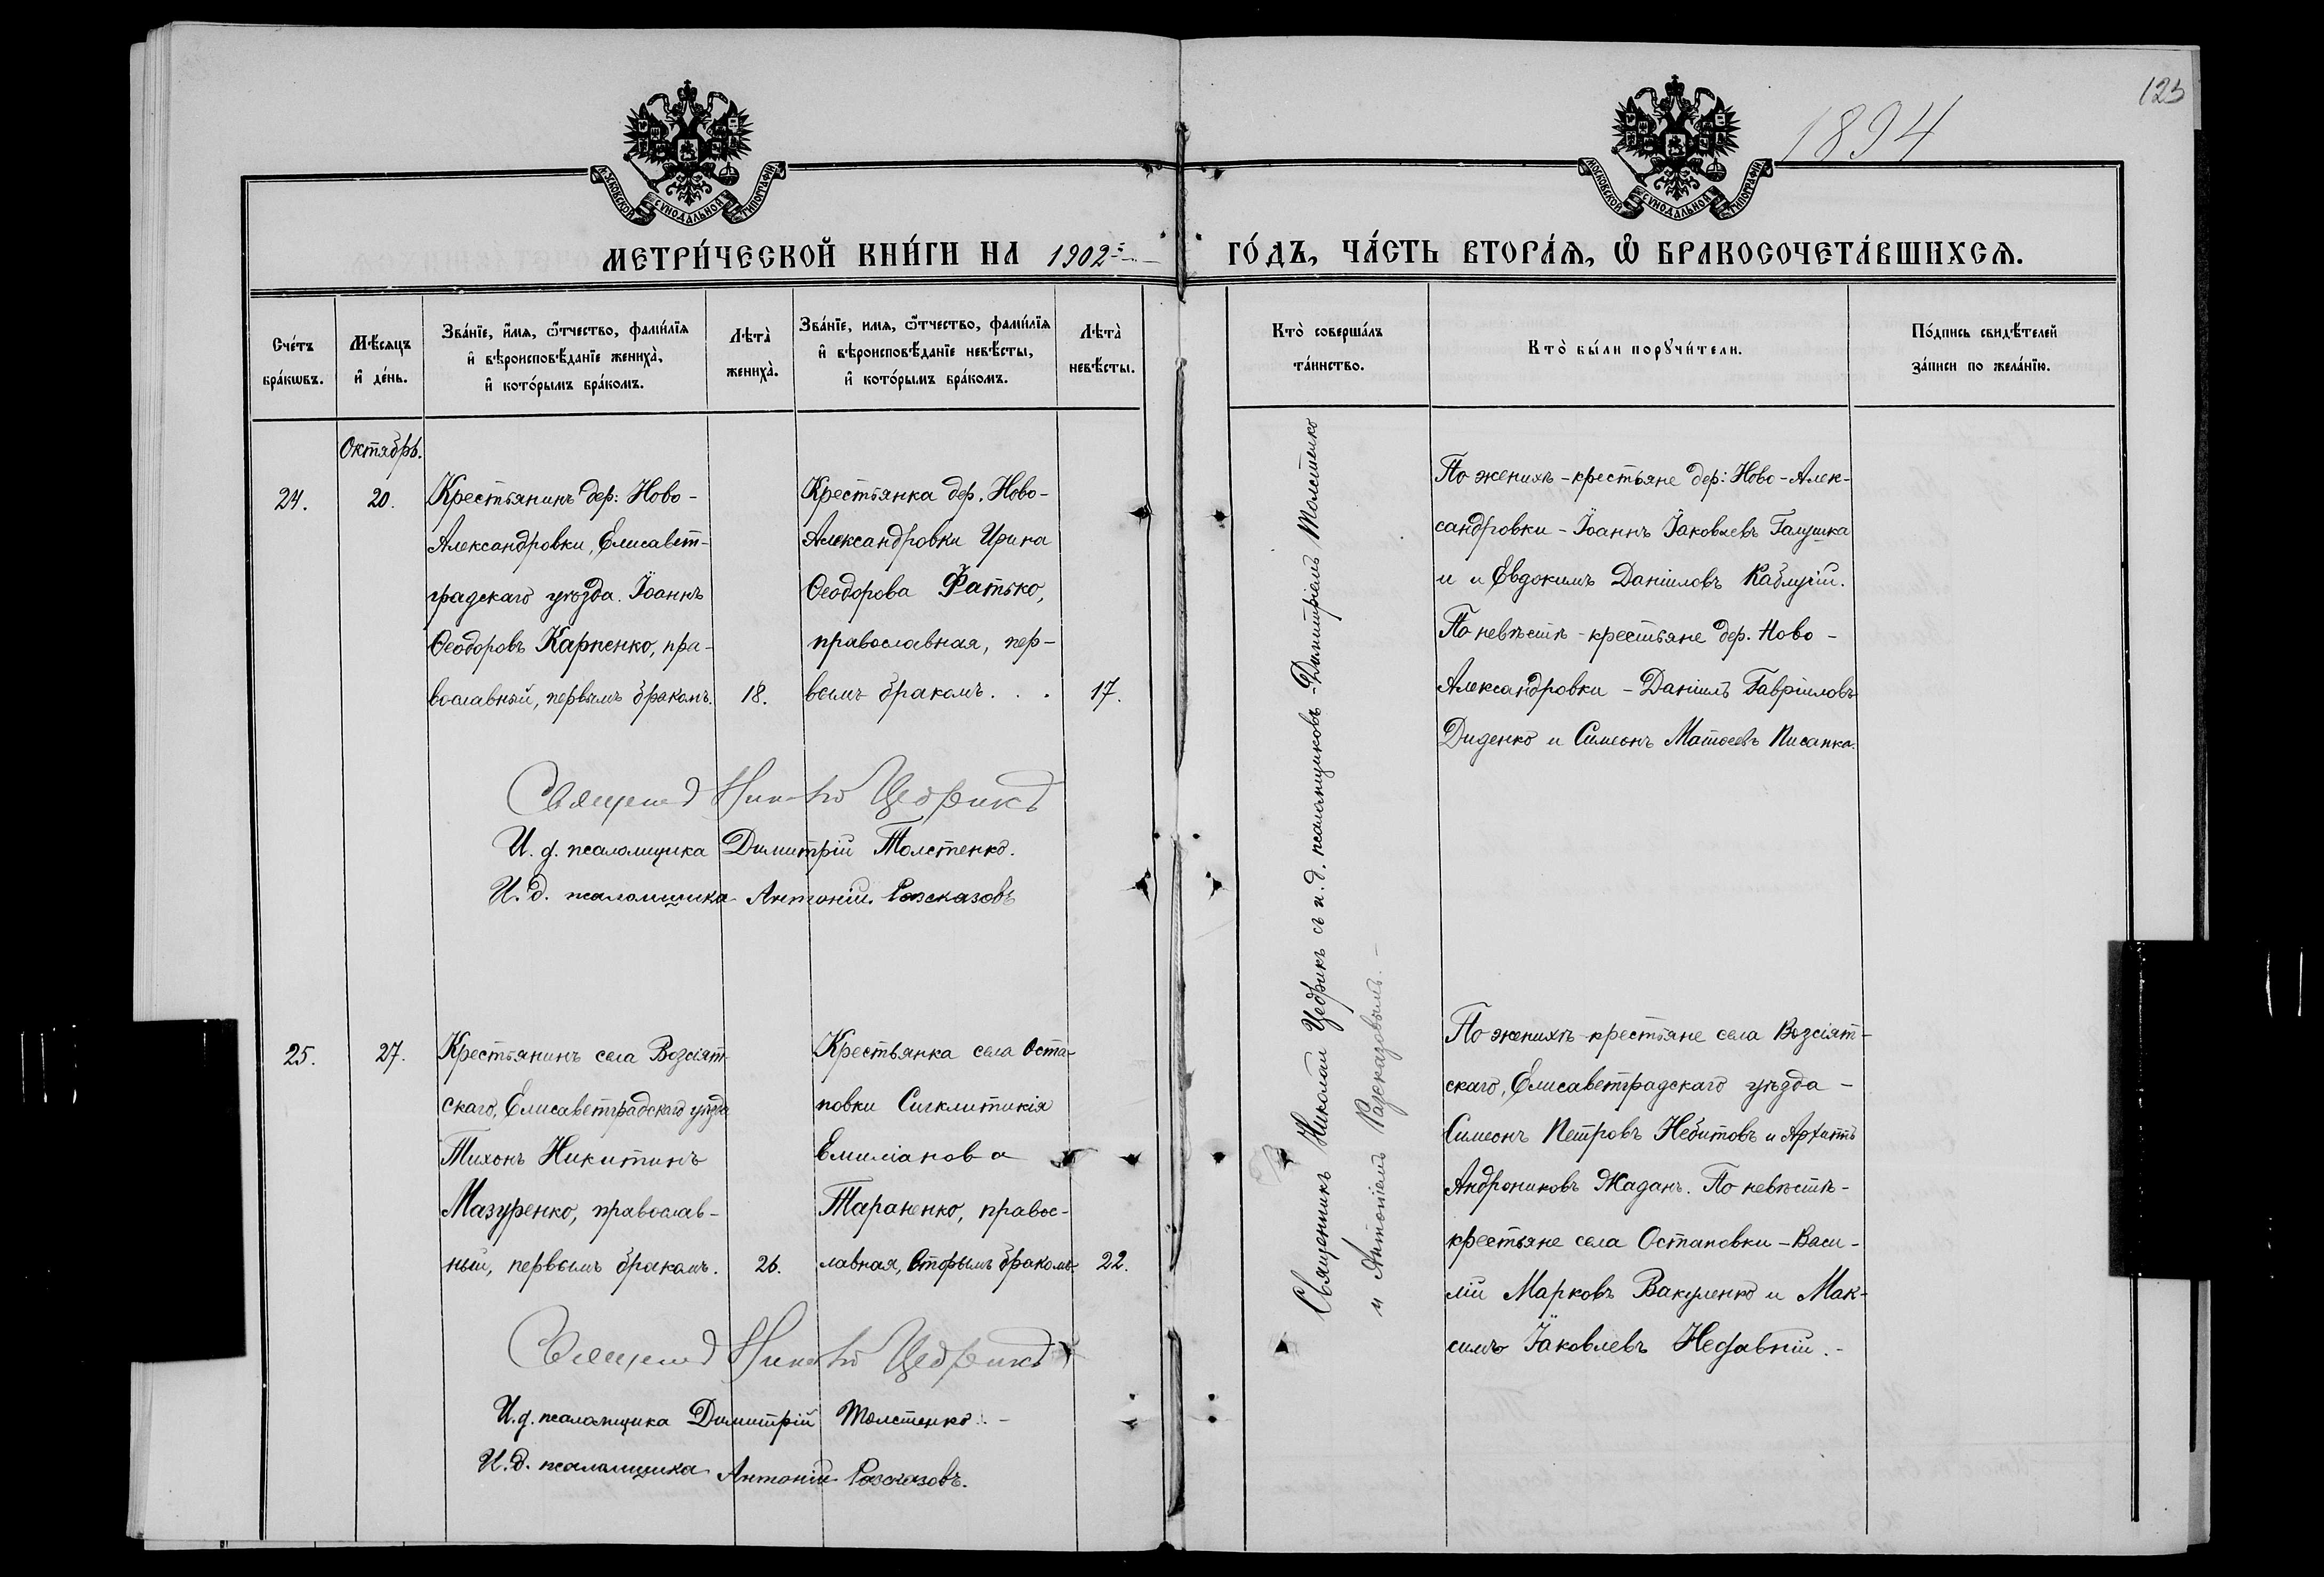 123
1894
МОСКОВСКОЙ СѴНОДАЛЬНОЙ ТИПОГРАФІИ
МОСКОВСКОЙ СѴНОДАЛЬНОЙ ТИПОГРАФІИ
МЕТРИ́ЧЕСКОЙ КНИ́ГИ НА 1902-й
ГО́ДЪ, ЧА́СТЬ ВТОРА́Ѧ, Ѿ БРАКОСОЧЕТА́ВШИХСѦ.
Сче́тъ бра́кѡвъ.
Мѣ́сѧцъ и҆ де́нь.
Зва́нїе, и҆́мѧ, ѻ҆́тчество, фами́лїѧ и҆ вѣроисповѣ́данїе жениха̀, и҆ кото́рымъ бра́комъ.
Лѣта̀ жениха̀.
Зва́нїе, имѧ, ѻ҆́тчество, фами́лїѧ и҆ вѣроисповѣ́данїе невѣ́сты, и҆ кото́рымъ бра́комъ.
Лѣта̀ невѣ́сты.
Кто̀ соверша́лъ та́инство.
Кто̀ бы́ли порꙋчи́тели.
По́дпись свидѣ́телей за́писи по жела́нїю.
Октябрь.
24.
20.
Крестьянинъ дер: Ново-
Александровки, Елисавет-
градскаго уѣзда. Іоаннъ
Ѳеодоровъ Карпенко, пра-
вославный, первымъ бракомъ.
18.
Крестьянка дер. Ново-
Александровки Ирина
Ѳеодорова Фатько,
православная, пер-
вымъ бракомъ. . .
17.
Священникъ Николай Цедрикъ съ и. д. псаломщиковъ - Димитріемъ Толстенко
и Антоніемъ Разсказовымъ. -
По женихѣ - крестьяне дер: Ново-Алек-
сандровки - Іоаннъ Іаковлевъ Галушка
и и Евдокимъ Даніиловъ Каблучій.
По невѣстѣ - крестьяне дер. Ново -
Александровки - Даніилъ Гавріиловъ
Диденко и Симеонъ Матѳеевъ Писанка.
Священ Ник-ай Цедрикъ
И. д. псаломщика Димитрій Толстенко.
И. д. псаломщика Антоній Разсказовъ
25.
27.
Крестьянинъ села Возсіят-
скаго, Елисаветградскаго уѣзда
Тихонъ Никитинъ
Мазуренко, православ-
ный, первымъ бракомъ.
26.
Крестьянка села Оста-
повки Сигклитикія
Емиліанова
Тараненко, правос-
лавная, вторымъ бракомъ.
22.
По женихѣ - крестьяне села Возсіят-
скаго, Елисаветградскаго уѣзда -
Симеонъ Петровъ Небитовъ и Архиппъ
Андрониковъ Жаданъ. По невѣстѣ -
крестьяне села Остаповки - Васи-
лій Марковъ Вакуленко и Мак-
симъ Іаковлевъ Недавній. -
Священ Ник-ай Цедрикъ
И. д. псаломщика Димитрій Толстенко. -
И. д. псаломщика Антоній Разсказовъ.